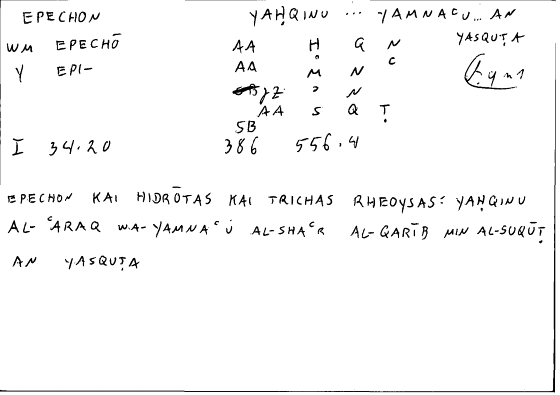 EPECHON YAḤQINU ... YAMNAᶜU... AN
WM EPECHŌ AA Ḥ Q N YASQUṬA
Y EPI- AA M N ᶜ
JZ ' N
AA S Q Ṭ
SB
I 34.20 386 556.4
EPECHON KAI HIDRŌTAS KAI TRICHAS RHEOYSAS: YAḤQINU
AL-ᶜARAQ WA-YAMNAᶜU AL-SHAᶜR AL-QARĪB MIN AL-SUQŪṬ
AN YASQUṬA